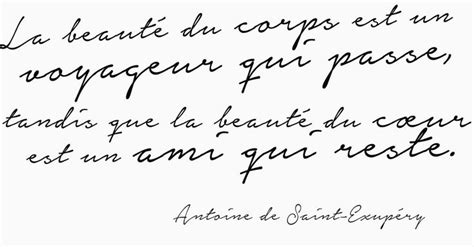 La beauté du corps est un
voyageur qui passe,
tandis que la beauté du cœur
est un ami qui reste.
Antoine de Saint-Exupéry